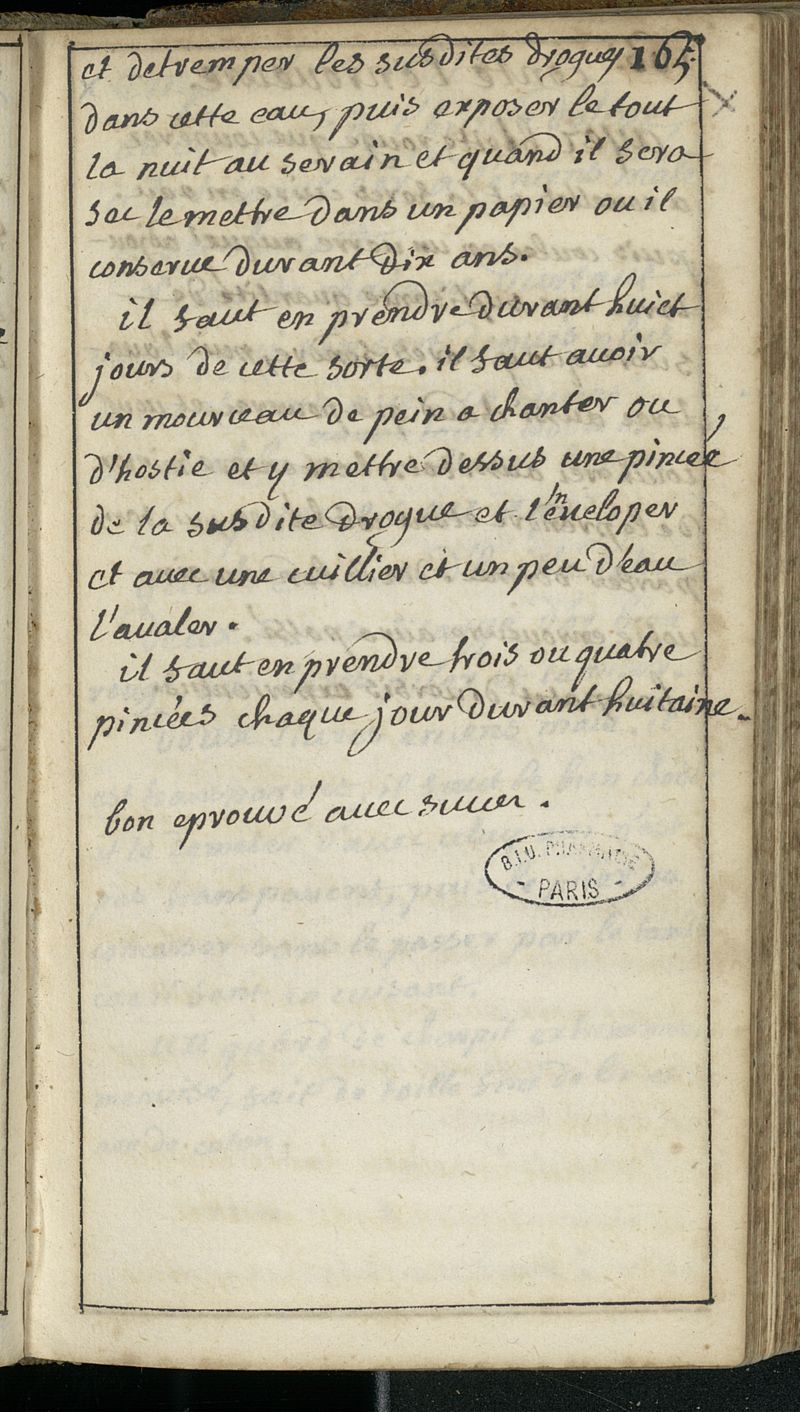 et detremper les susdites drogues 165.
dans cette eau, puis exposer le tout
la nuit au serain et quand il sera
sec le mettre dans un papier ou il
conserue durant dix ans.
il faut en prendre durant huict
jours de cette sorte. il faut auoir
un mourceau de pein a chanter ou
d'hostie et y mettre dessus une pincée
de la susdite drogue et l'enueloper
et auec une cuillier et un peu d'eau
l'aualer.
il faut en prendre trois ou quatre
pincées chaque jour durant huitaine.
bon eprouué auec succer.
B.I.U. PHARMACIE
PARIS